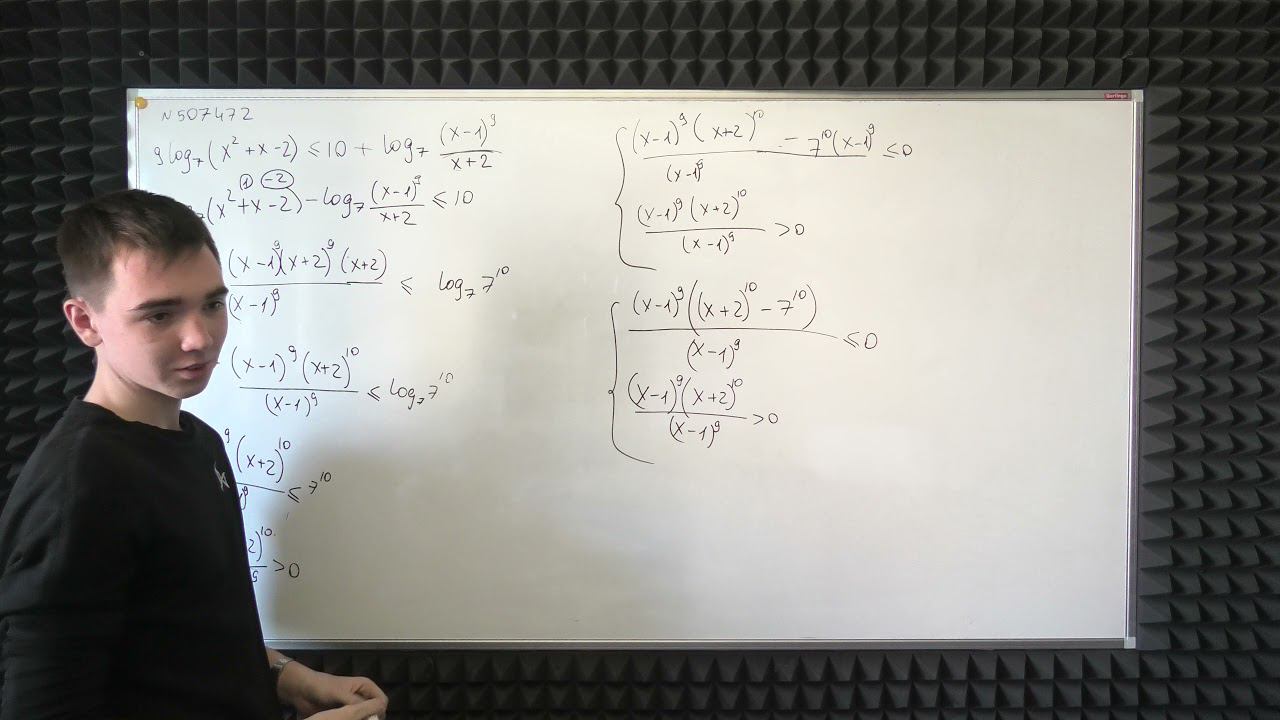 N 507472
9 log₇(x² + x - 2) ≤ 10 + log₇ (x-1)⁹/(x+2)
① ⊖2
(x² + x - 2) - log₇ (x-1)⁹/(x+2) ≤ 10
(x-1)⁹(x+2)⁹(x+2)/(x-1)⁹ ≤ log₇ 7¹⁰
(x-1)⁹(x+2)¹⁰/(x-1)⁹ ≤ log₇ 7¹⁰
(x+2)¹⁰ ≤ 7¹⁰
2)¹⁰ > 0
(x-1)⁹(x+2)¹⁰ - 7¹⁰(x-1)⁹/(x-1)⁹ ≤ 0
(x-1)⁹(x+2)¹⁰/(x-1)⁹ > 0
(x-1)⁹((x+2)¹⁰ - 7¹⁰)/(x-1)⁹ ≤ 0
(x-1)⁹(x+2)¹⁰/(x-1)⁹ > 0